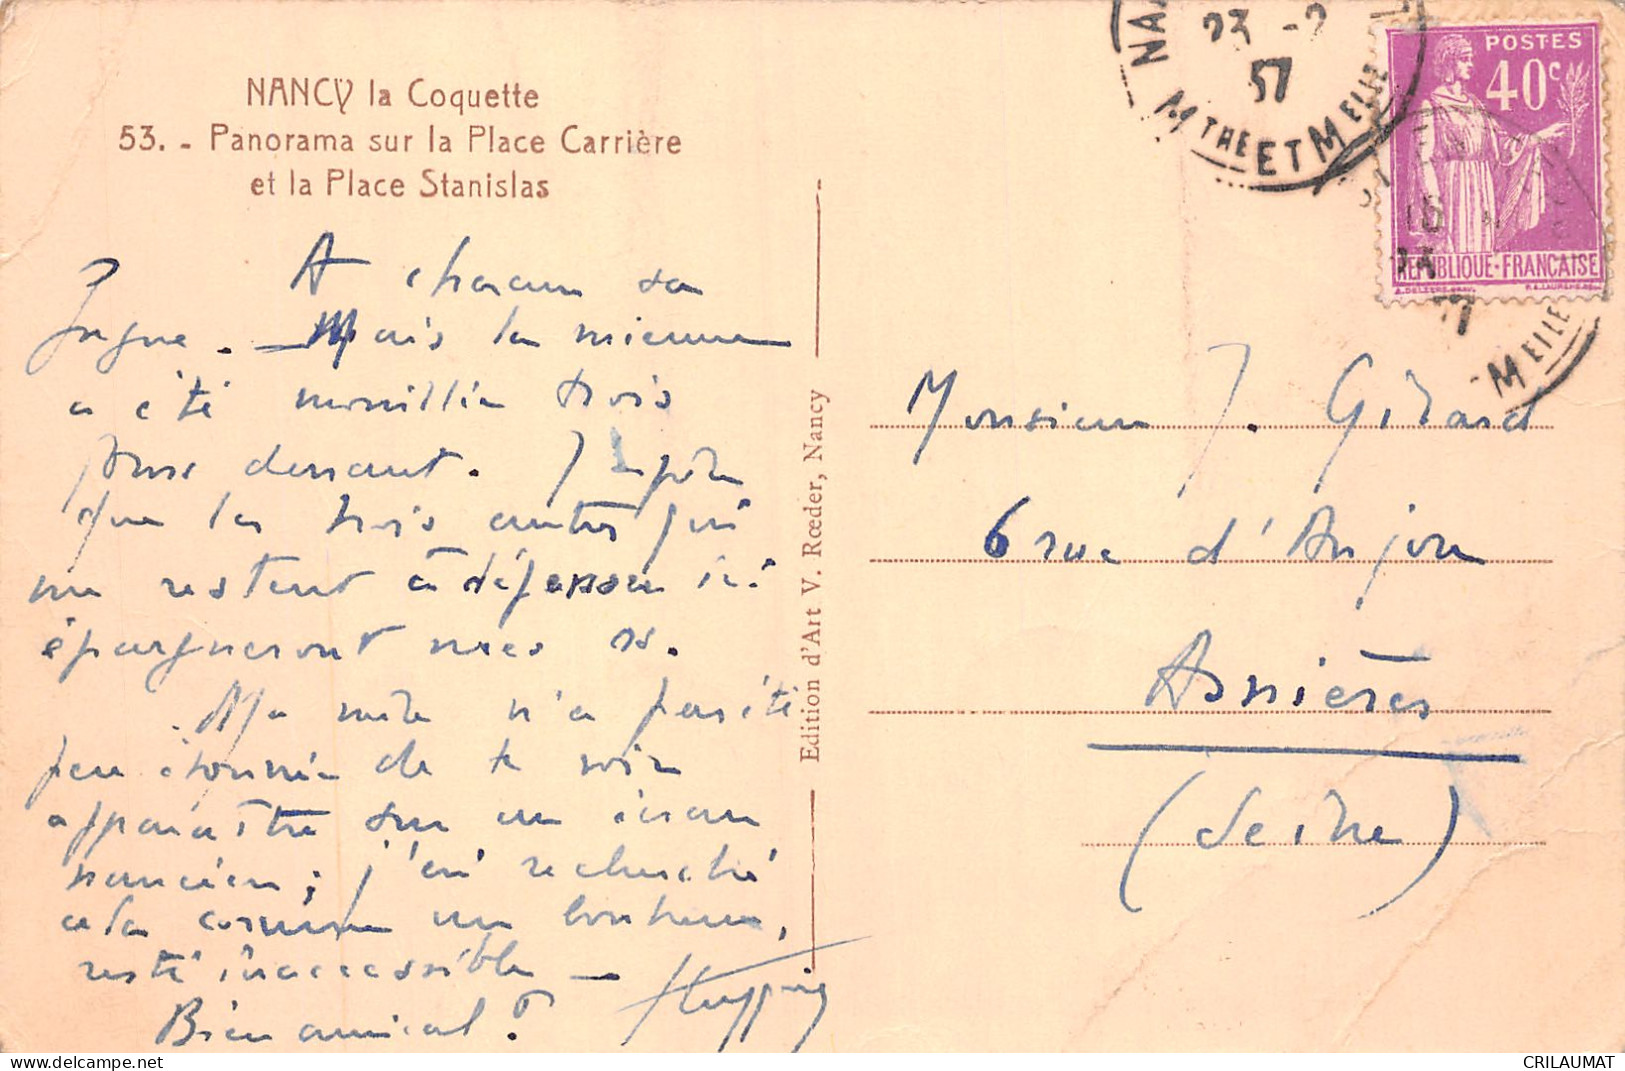 NANCY la Coquette
53. - Panorama sur la Place Carrière
et la Place Stanislas
A chacun sa
fugue. — Mais la mienne
a été mouillée trois
jours durant. J'espère
que les trois autres qui
me restent à dépenser ici
épargneront mes os.
Ma mère n'a pas été
peu étonnée de te voir
apparaître sur un écran
nancéien ; j'ai recherché
cela comme un bonheur,
resté inaccessible —
Bien amical.
Edition d'Art V. Rœder, Nancy
NAN
23 -2
37
MTHE ET MELLE
POSTES
40c
REPUBLIQUE-FRANÇAISE
MEILLE
Monsieur J. Girard
6 rue d'Anjou
Asnières
(Seine)
CRILAUMAT